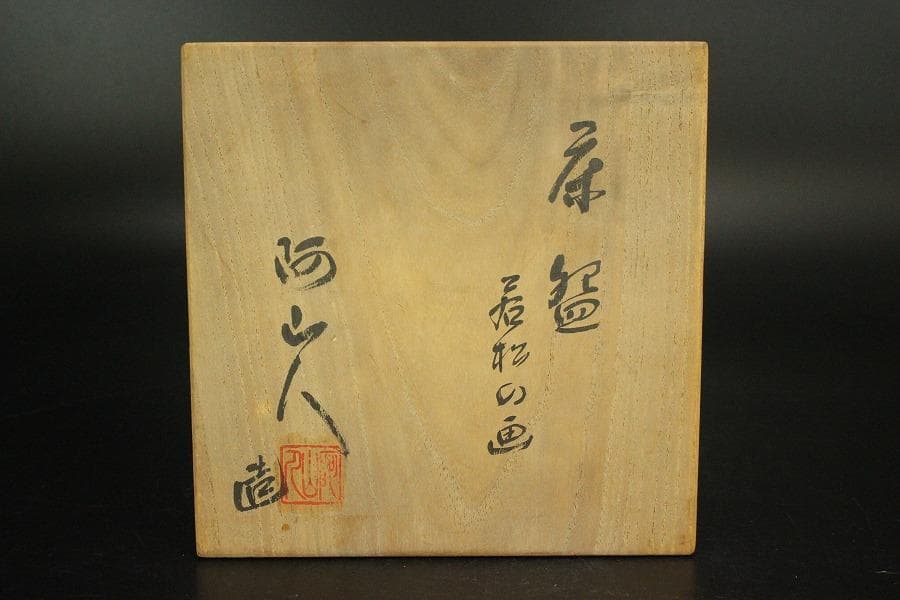 茶盌
若松の画
阿山人
造